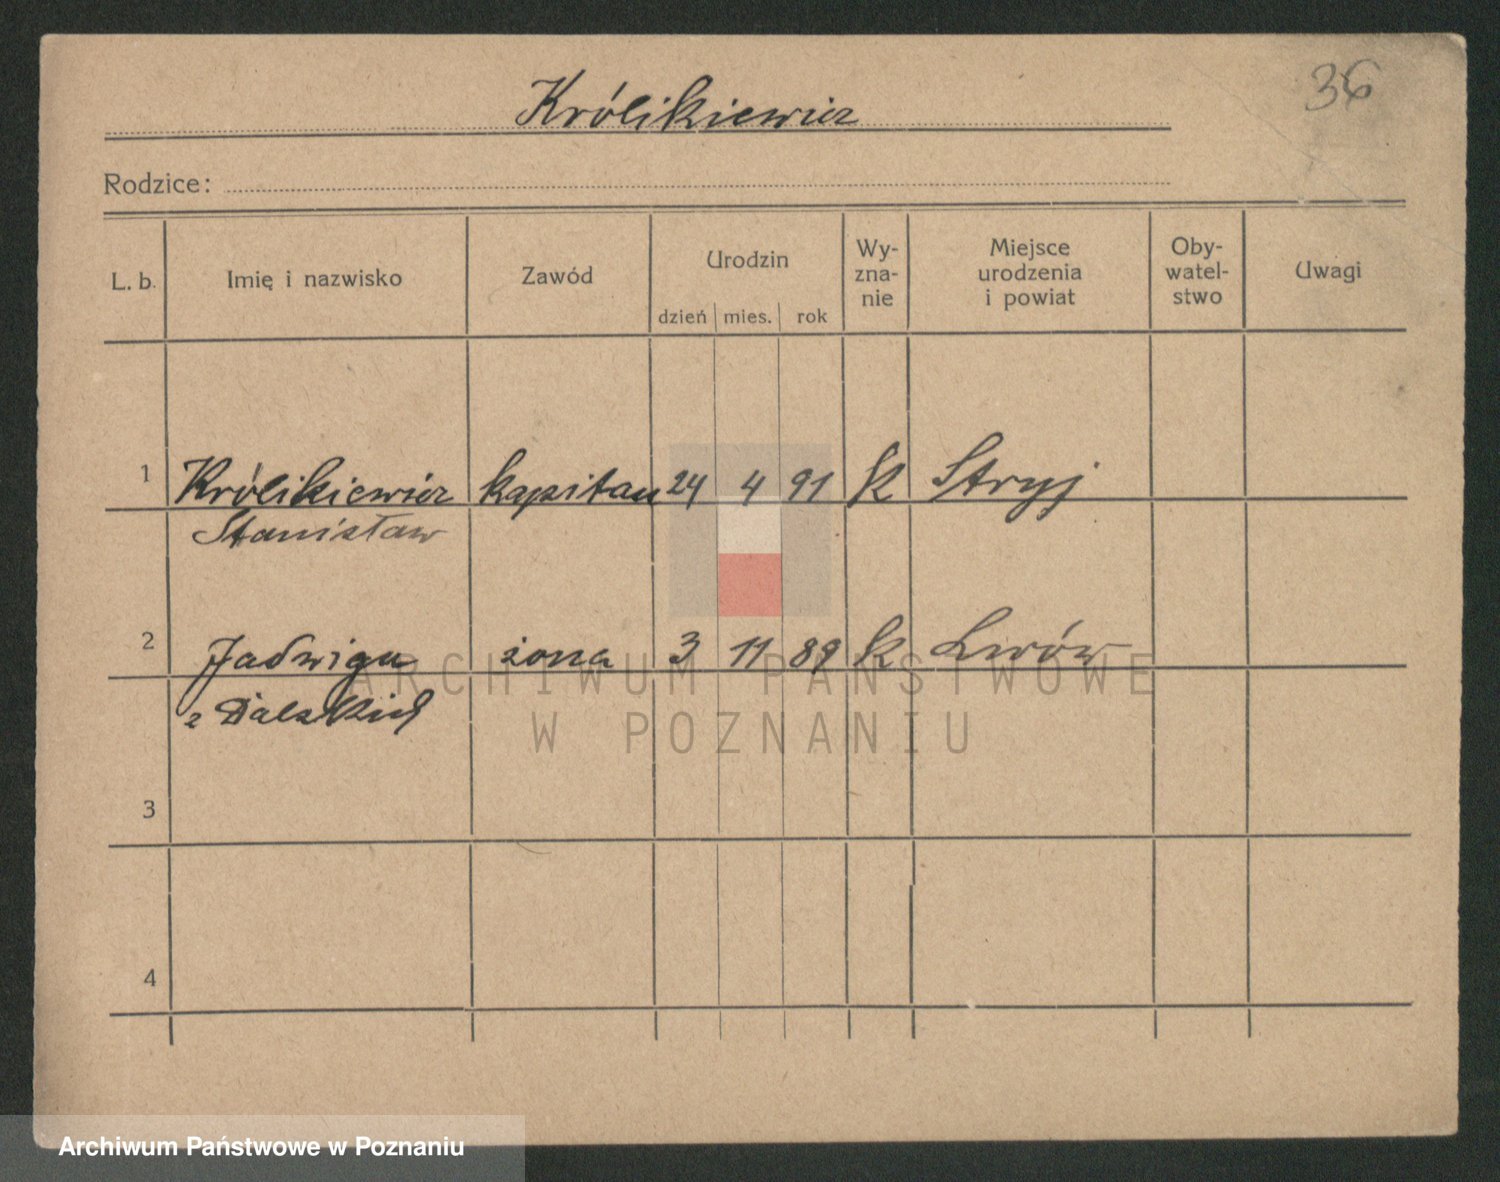 36
Królikiewicz
Rodzice:
L. b. Imię i nazwisko Zawód Urodzin dzień mies. rok Wy-
zna-
nie Miejsce
urodzenia
i powiat Oby-
watel-
stwo Uwagi
1 Królikiewicz kapitan 24 4 91 k Stryj
Stanisław
2 Jadwiga żona 3 11 89 k Lwów
z Dalskich
ARCHIWUM PAŃSTWOWE
W POZNANIU
3
4
Archiwum Państwowe w Poznaniu